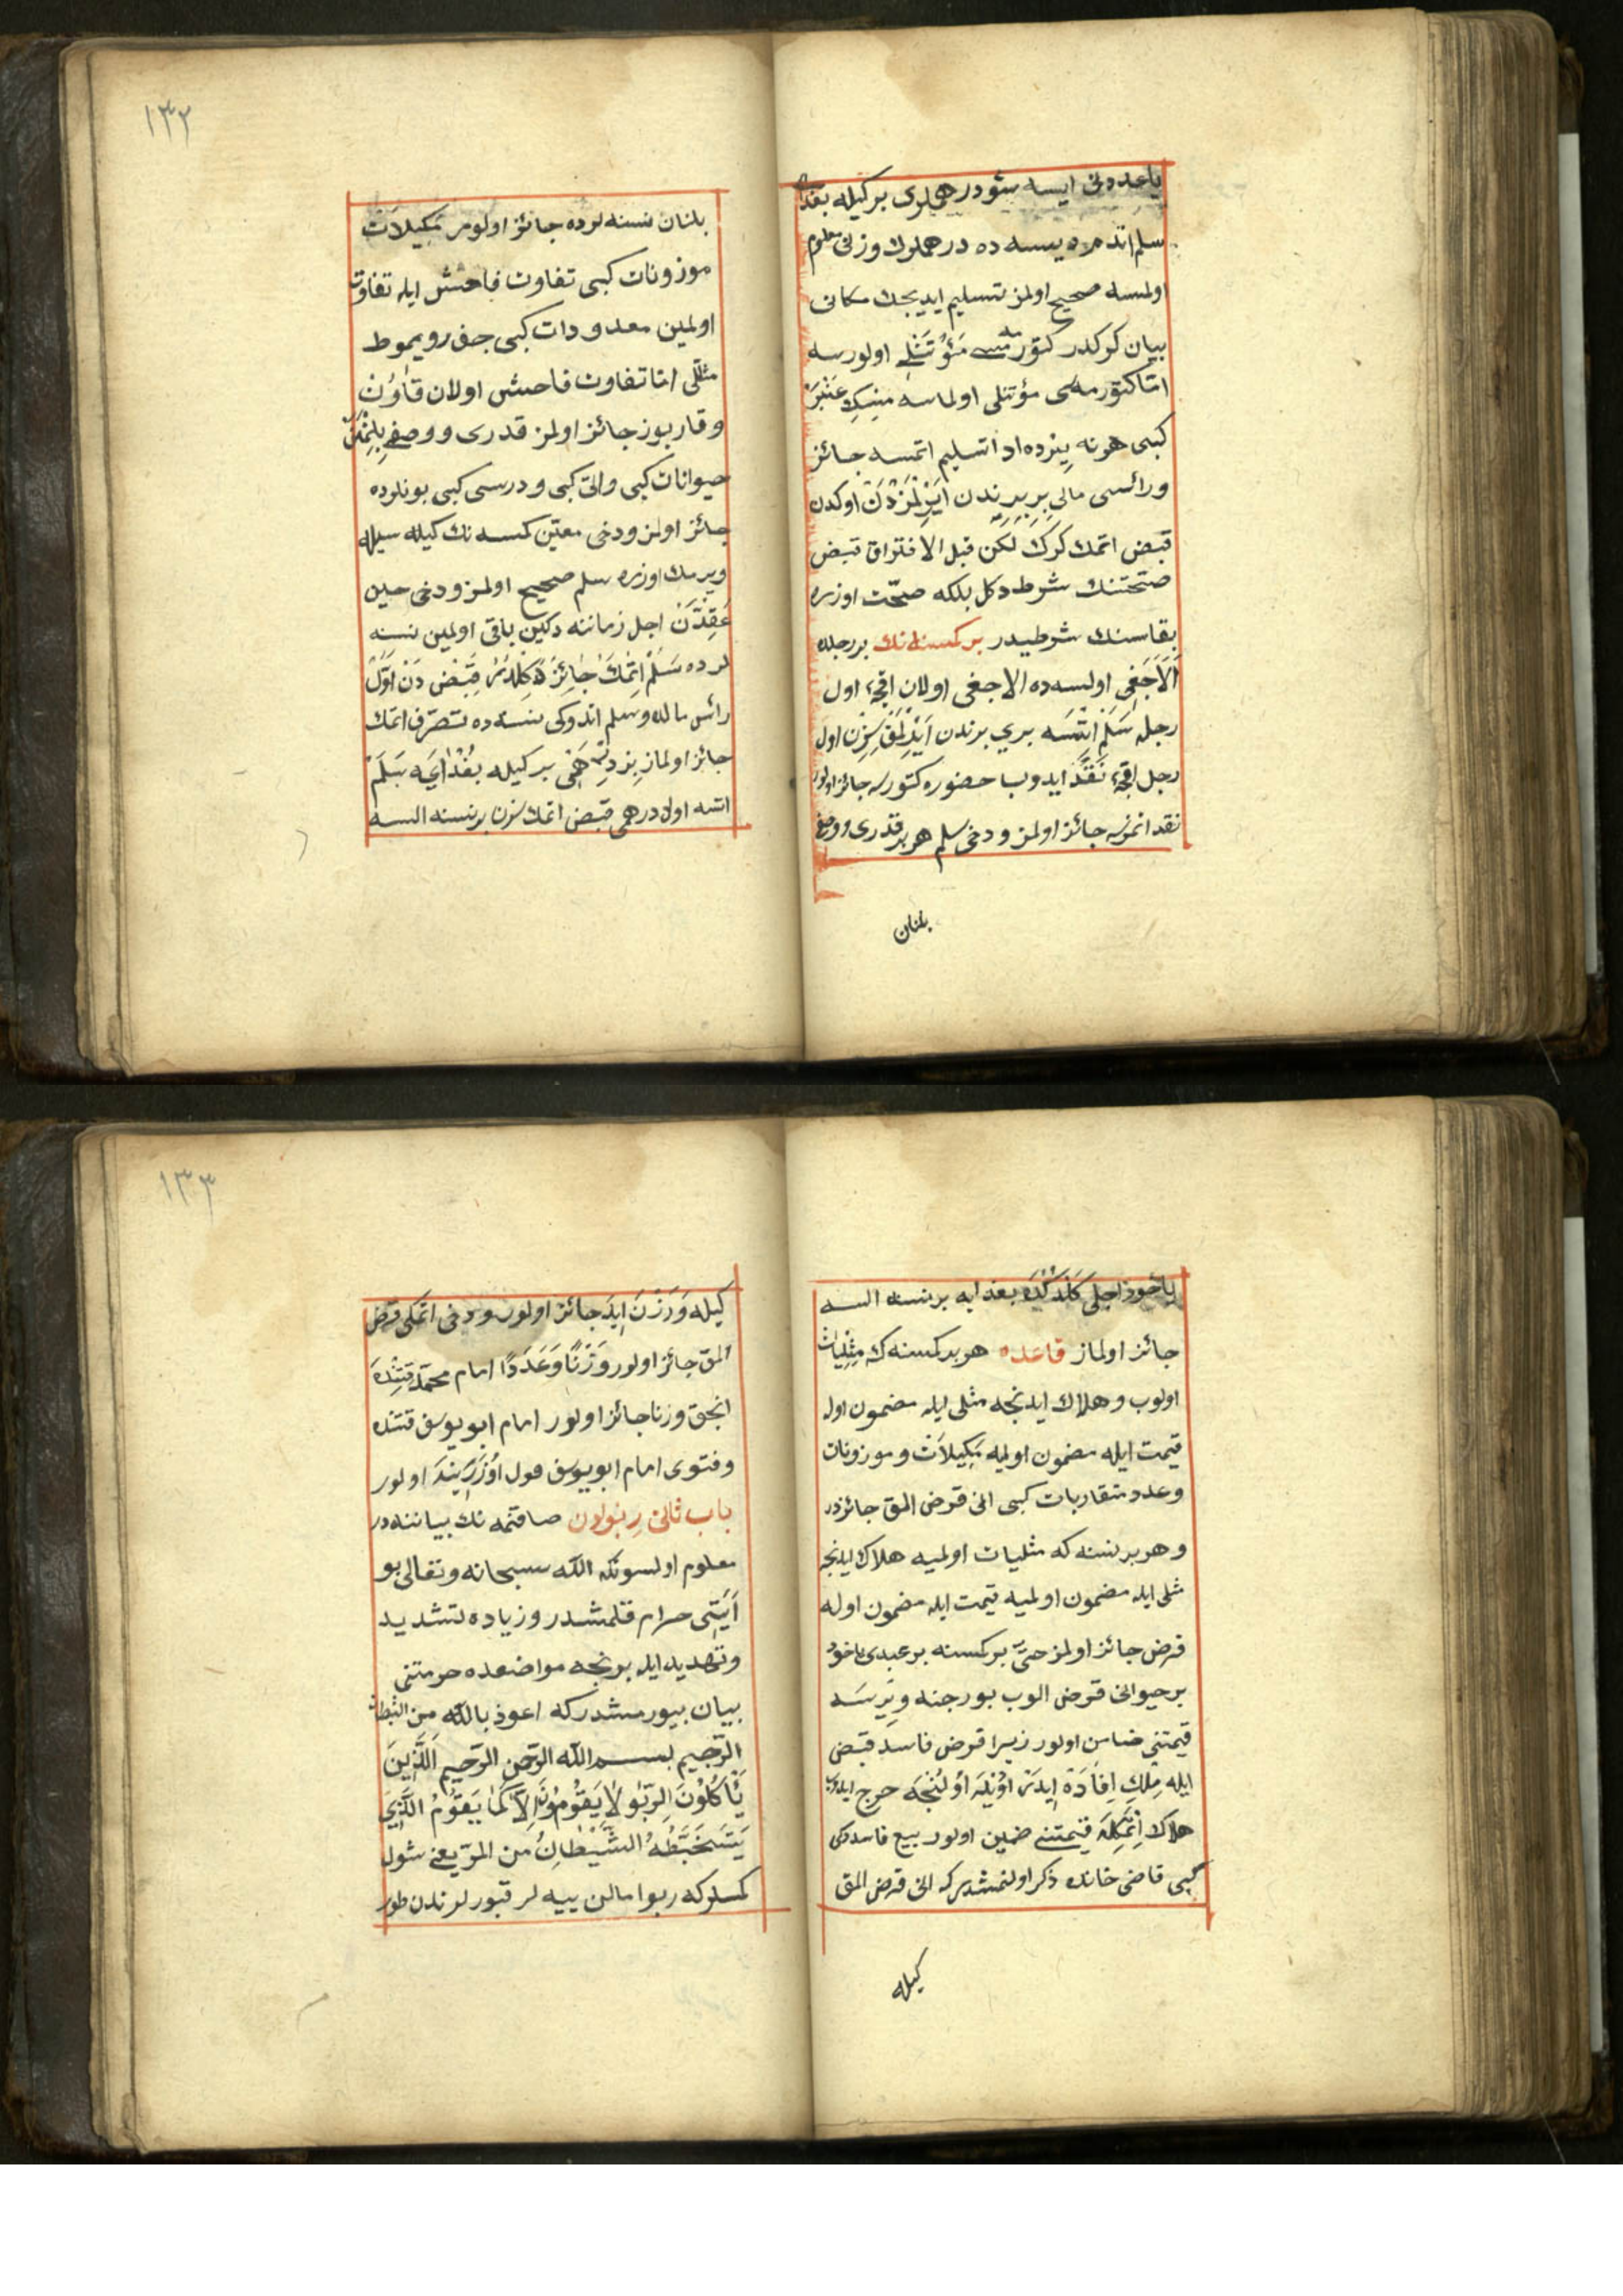 ياعددنى ايسه شو درهملرى بر كيله بغدايه
سلم اتدم ديسه ده درهملرك وزنى معلوم
اولمسه صحيح اولمز تسليم ايديجك مكانى
بيان كركدر كتورمه سى مَئُوتَنلى اولورسه
امّا كتورمه سى مؤتنلى اولماسه مِسِك عَنْبَر
كبى هر نه يرده ادا تسليم اتمسه جائز
ورائسى مالى بربيرندن اَيْرِلْمَزْدَنْ اوكدن
قبض اتمك كرك لكن قبل الافتراق قبض
صحّتنك شرط دكل بلكه صحّت اوزره
بقاسنك شرطيدر بر كسنه نك بر رجلده
اَلاَجَغِى اولسه ده الاجغى اولان اقچه اول
رجله سَلَم اتْمَسَه بري برندن اَيْرِلْمَقْسِزِن اول
رجل اقچه نَقْدَ ايدوب حضوره كتورسه جائز اولور
نقد اتمزسه جائز اولمز ودخى سلم هر بر قدرى ووصفى
بلنان
١٣٢
بلنان نسنه لرده جائز اولور مَكِيلاَت
موزونات كبى تفاوت فاحش ايله تفاوت
اولمين معدودات كبى جفز ويموطه
مثللى امّا تفاوت فاحش اولان قَاوُنْ
وقاربوز جائز اولمز قدرى ووصفى بِلِنْمَيَنْ
حيوانات كبى والتى كبى ودرسى كبى بونلرده
جائز اولمز ودخى معيّن كمسه نك كيله سيله
ويرمك اوزره سلم صحيح اولمز ودخى حين
عَقِدْدَن اجل زماننه دكين باقى اولمين نسنه
لرده سَلَمْ اِتْمَكْ جَائِزْ دَكِلْدُرْ قَبْضْ دَنْ اَوَّلْ
رائس مالده وسلم اتدوكى نسنه ده تصرّف اتمك
جائز اولماز بِرْ دِرْهَمِى بر كيله بُغْدَايَه سَلَمْ
اتسه اول درهمى قبض اتمك سزن بر نسنه السه
ياخود اجلى كَلْدُكْدَه بغدايه بر نسنه السه
جائز اولماز قاعده هر بر كسنه ك مِثْلِيَاتْ
اولوب وهلاك ايدنجه مثلى ايله مضمون اوله
قيمت ايله مضمون اولميه مَكِيلاَتْ وموزونات
وعدد متقاربات كبى انى قرض المق جائزدر
وهر بر نسنه كه مثليات اولميه هلاك ايدنجه
مثلى ايله مضمون اولميه قيمت ايله مضمون اوله
قرض جائز اولمز حتى بر كسنه بر عبدى ياخود
بر حيوانى قرض الوب بورجنه ويرسَه
قيمتنى ضامن اولور زيرا قرض فاسد قبض
ايله مِلْكِ اِفَادَه اِيدَرْ اُوْيلَه اُولُنْجَه خرج ايدوب
هلاك اِتْمَكِلَه قيمتنى ضمين اولور بيع فاسدكى
كبى قاضى خانده ذكر اولنمشدركه انى قرض المق
كيله
١٣٣
كيله وَوَزْنَ ايله جائز اولور ودخى اتمكى قرض
المق جائز اولور وَزْنًا وَعَدَدًا امام محمّد قَتِنْدَه
انجق وزنا جائز اولور امام ابو يوسف قتنده
وفتوى امام ابو يوسف قول اُوْزَرِينَه اولور
باب ثانى رِبَوادن صاقنمه نك بياننده در
معلوم اولسونكه الله سبحانه وتعالى بو
اَيَتِى حرام قلمشدر وزياده تشديد
وتهديد ايله بر نجه مواضعده حرمتنى
بيان بيورمشدركه اعوذ بالله من الشيطان
الرّجيم بسم الله الرّحمن الرّحيم اَلَّذِينَ
يَأْكُلُونَ الرِّبَوا لاَ يَقُومُونَ اِلاَّ كَمَا يَقُومُ الَّذِى
يَتَخَبَّطُهُ الشَّيْطَانُ من المسّ يعنى شول
كمسلركه ربوا مالن ييه لر قبورلرندن طور